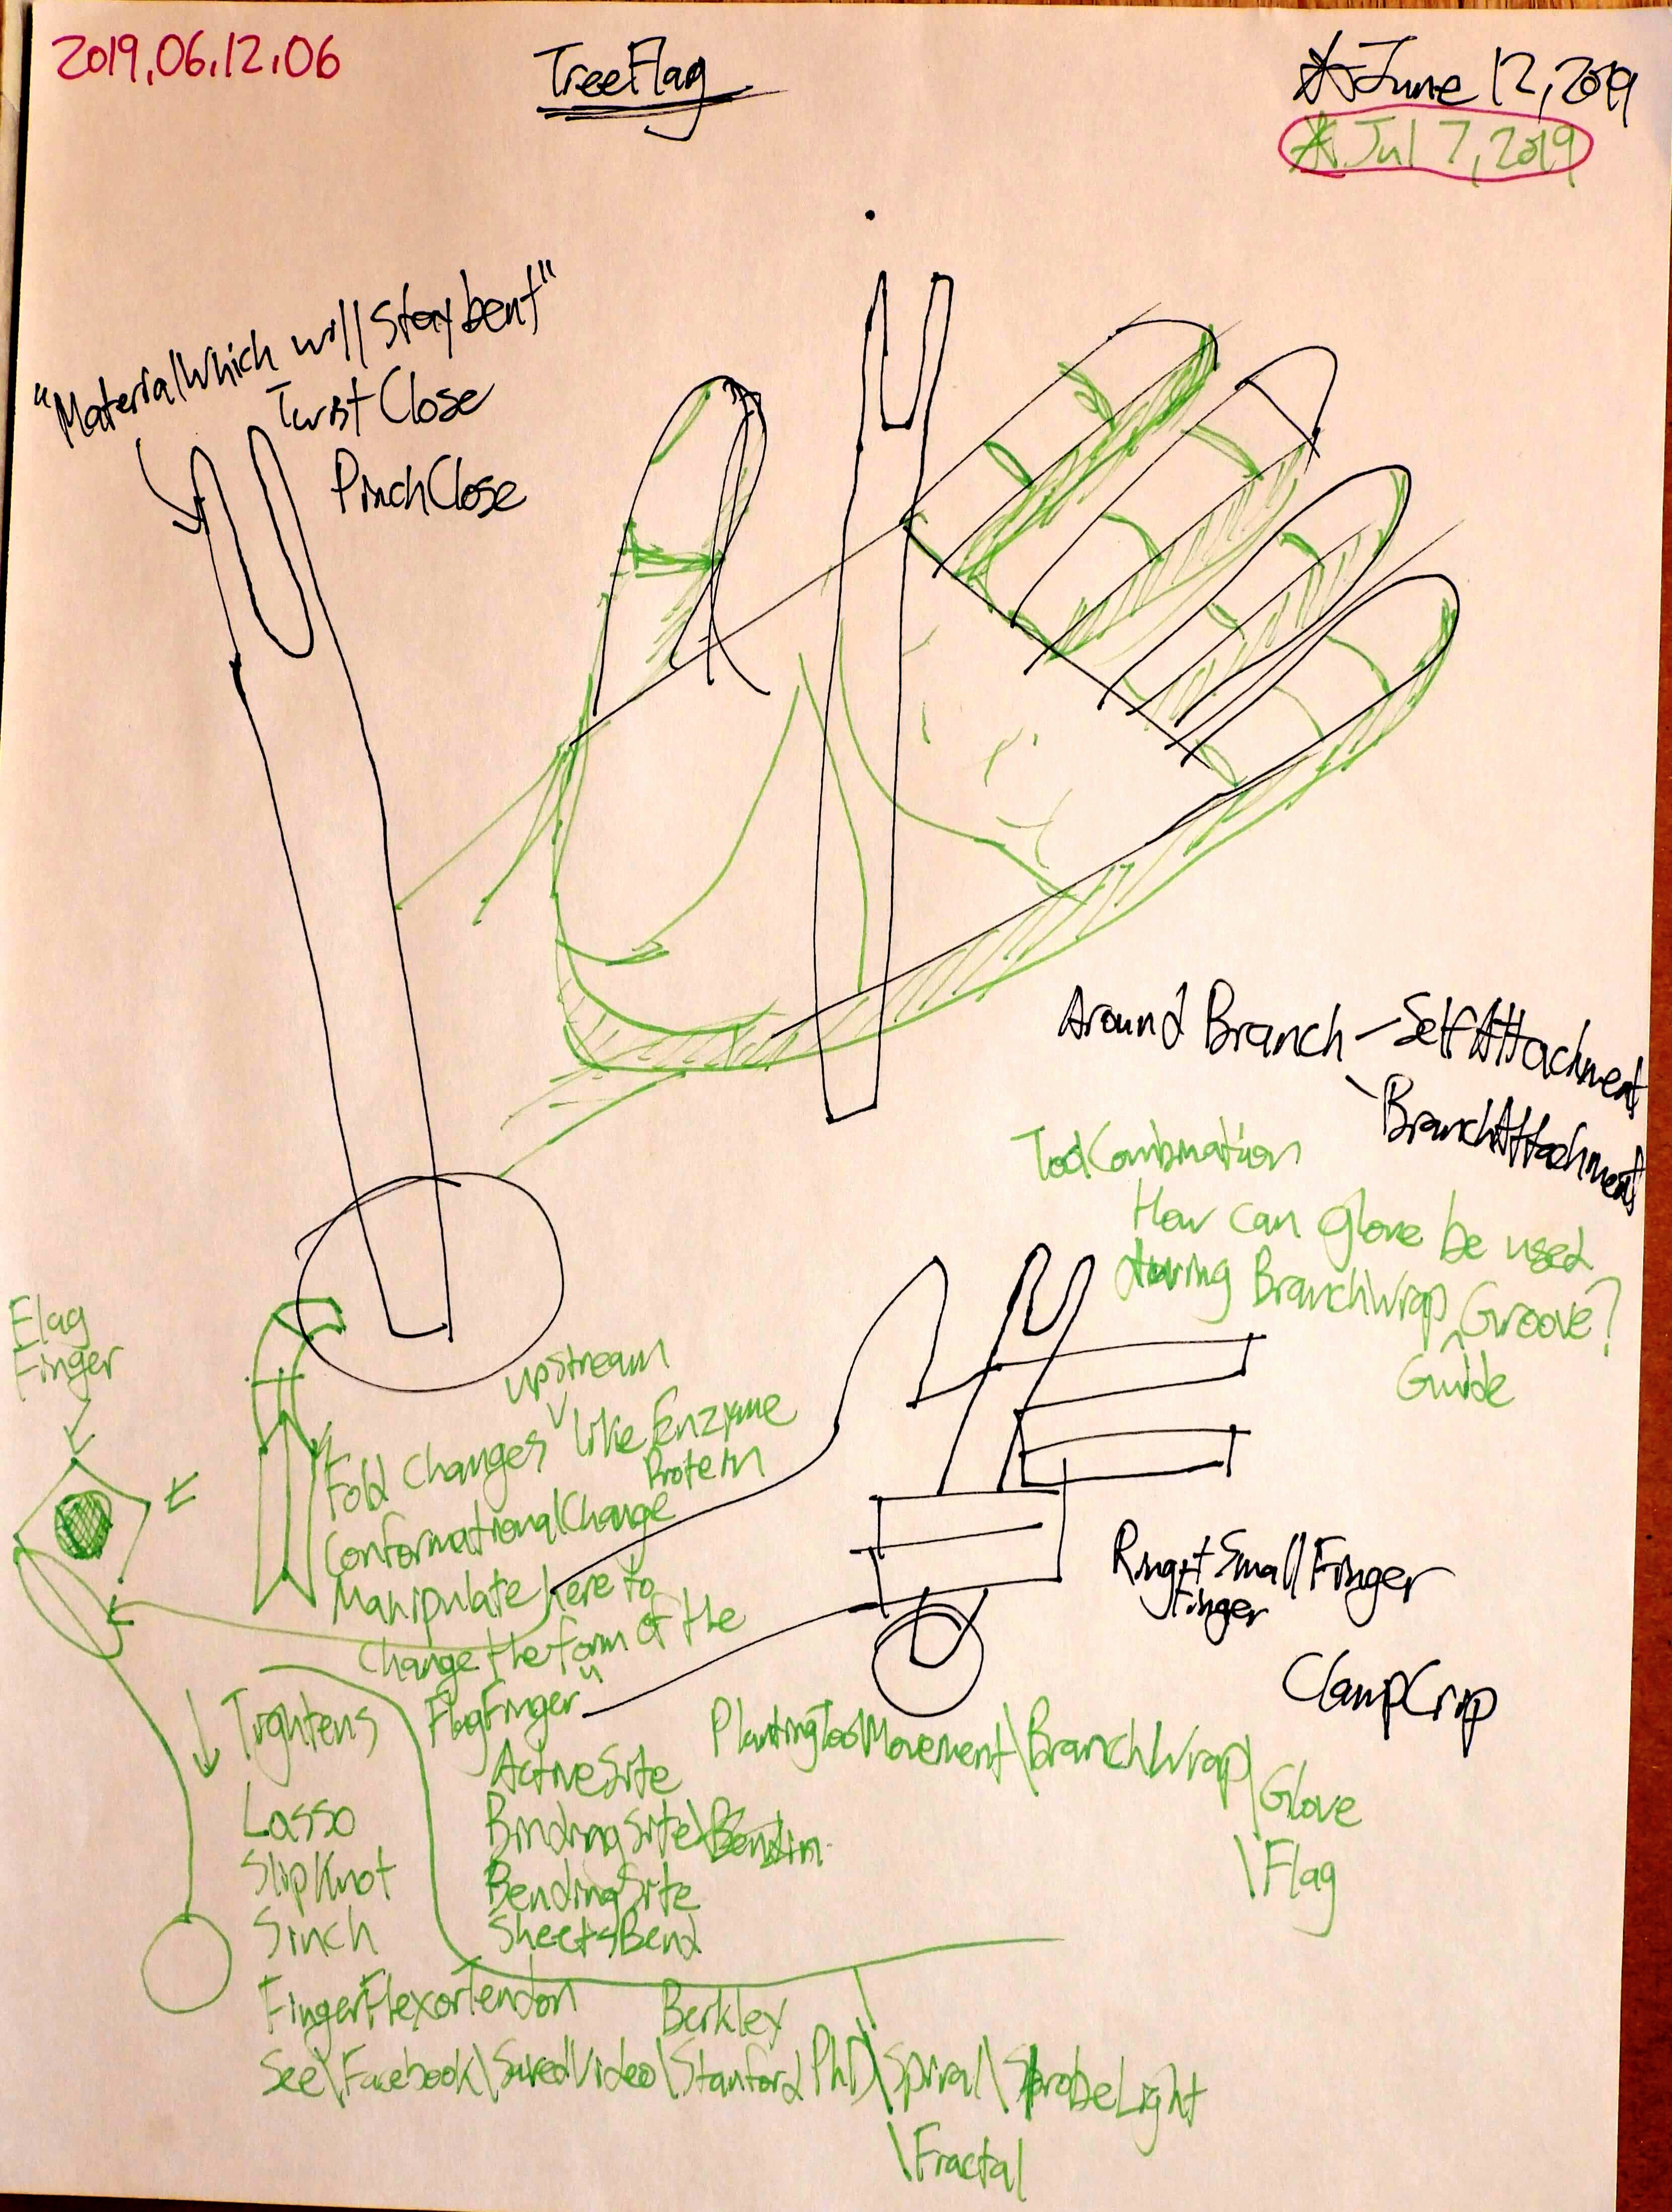 2019.06.12.06
TreeFlag
June 12, 2019
Jul 7, 2019
"Material Which will Stay bent"
Twist Close
Pinch Close
Around Branch – Self Attachment
\ Branch Attachment
Tool Combination
How can glove be used
during BranchWrap Groove?
^ Guide
Flag
Finger
upstream
Fold Changes ∨ like Enzyme
Protein
Conformational Change
Manipulate here to
Change the form of the
FlagFinger"
Ring + Small Finger
Finger
ClampCrip
PlantingToolMovement\BranchWrap\
Glove
\Flag
Tightens
Lasso
SlipKnot
Sinch
FingerFlexorTendon
ActiveSite
BindingSite\Bendin
BendingSite
SheetsBend
Berkley
See\Facebook\SavedVideo\Stanford PhD\Spiral\StrobeLight
\Fractal